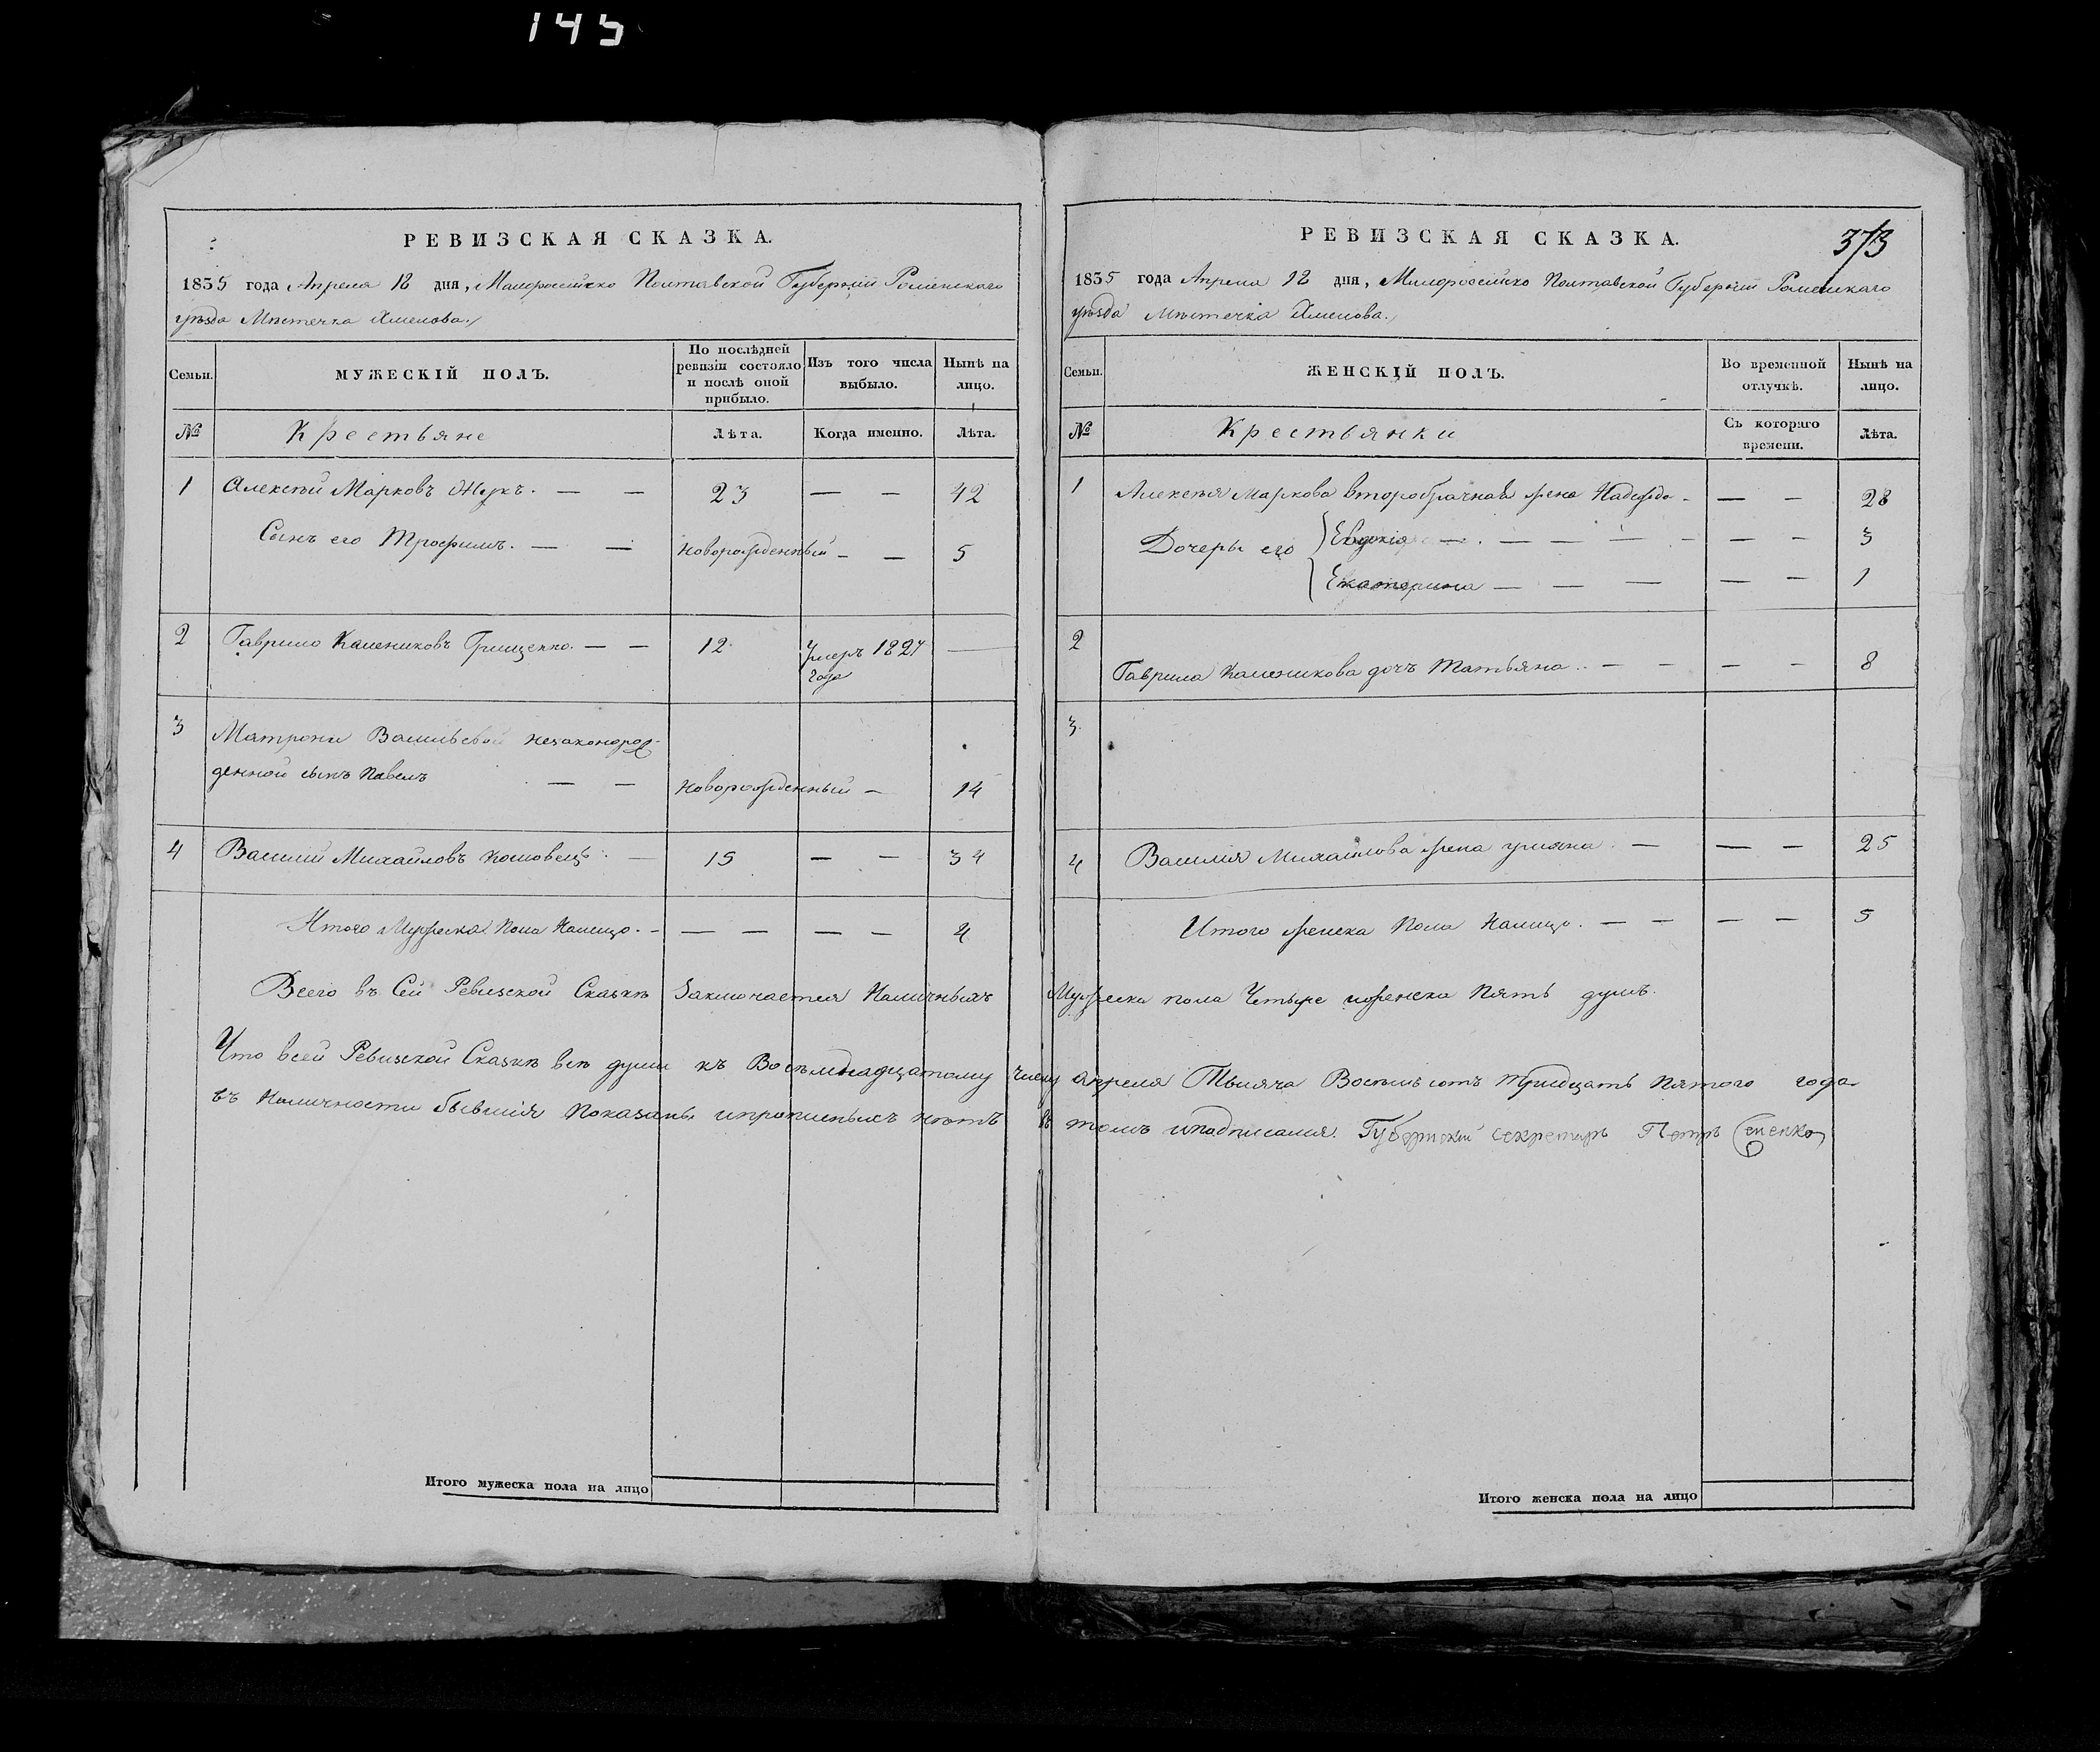 145
РЕВИЗСКАЯ СКАЗКА.
1835 года Апреля 18 дня, Малоросссійско Полтавской Губерніи Роменскаго
уѣзда Мѣстечка Хмелова.
Семьи.
МУЖЕСКІЙ ПОЛЪ.
По послѣдней ревизіи состояло и послѣ оной прибыло.
Изъ того числа выбыло.
Нынѣ на лицо.
№
Крестьяне
Лѣта.
Когда именно.
Лѣта.
1 Алексѣй Марковъ Жукъ. — — 23 — — 42
Сынъ его Трофимъ. — — новорожденный — — 5
2 Гаврило Калениковъ Грищенко. — — 12 Умеръ 1827 года —
3 Матроны Васильевой незаконорож-
денной сынъ Павелъ — — новорожденный — 14
4 Василій Михайловъ Кошовецъ — 15 — — 34
Итого Мужеска Пола Налицо. — — — — — 4
РЕВИЗСКАЯ СКАЗКА.
373
1835 года Апреля 18 дня, Малоросссійско Полтавской Губерніи Роменскаго
уѣзда Мѣстечка Хмелова.
Семьи.
ЖЕНСКІЙ ПОЛЪ.
Во временной отлучкѣ.
Нынѣ на лицо.
№
Крестьянки
Съ котораго времени.
Лѣта.
1 Алексѣя Маркова второбрачная жена Надежда — — — 28
Дочеры его Евдокія — — — — — — — 3
Екатерина — — — — — 1
2
Гаврила Каленикова дочъ Татьяна — — — — 8
3.
4 Василія Михайлова жена улияна — — — 25
Итого женска Пола Налицо. — — — — 5
Всего въ Сей Ревизской Сказкѣ Заключается Наличныхъ Мужеска пола Четыре иженска Пять душъ.
Что всей Ревизской Сказкѣ всѣ души къ Восѣмнадцатому числу апреля Тысяча Восѣмь сотъ тридцать пятого года
въ Наличности бывшія Показаны ипрописныхъ нѣтъ въ томъ иподписался. Губернскій секретарь Петръ
Итого мужеска пола на лицо
Итого женска пола на лицо